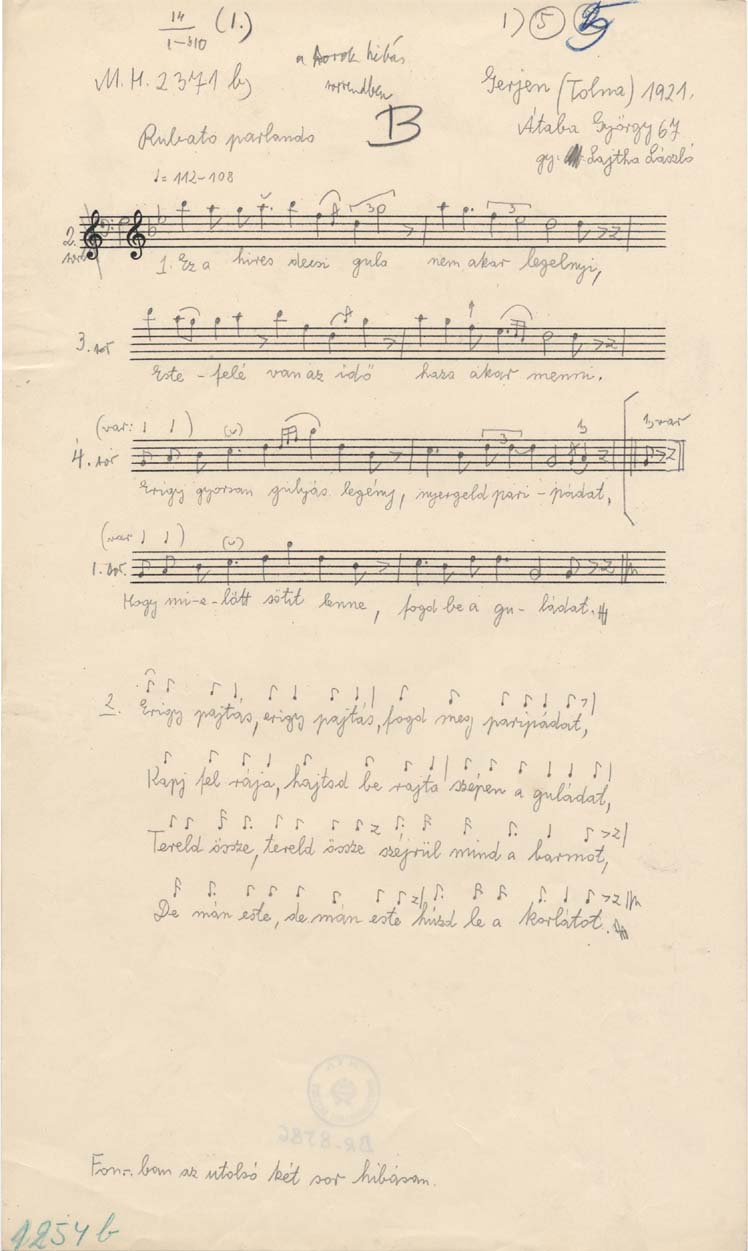 14 / 1-310 (1.)
1) 5
a sorok hibás
sorrendben
M.H. 2371 b)
B
Gerjen (Tolna) 1921.
Átaba György 67
gy. Lajtha László
Rubato parlando
♩= 112-108
2. sor
1. Ez a hires decsi gula nem akar legelnyi,
3. sor
Este-felé van az idő haza akar menni.
(var: )
4. sor
1) var
Erigy gyorsan gulyás legény, nyergeld pari-pádat,
(var )
1. sor.
Hogy mi-e-lött sötit lenne, fogd be a gu-ládat.
2. Erigy pajtás, erigy pajtás, fogd meg paripádat,
Kapj fel rája, hajtsd be rajta szépen a guládat,
Tereld össze, tereld össze széjrül mind a barmot,
De mán este, de mán este húzd le a korlátot.
BR-8786
Fon.-ban az utolsó két sor hibásan.
1254 b